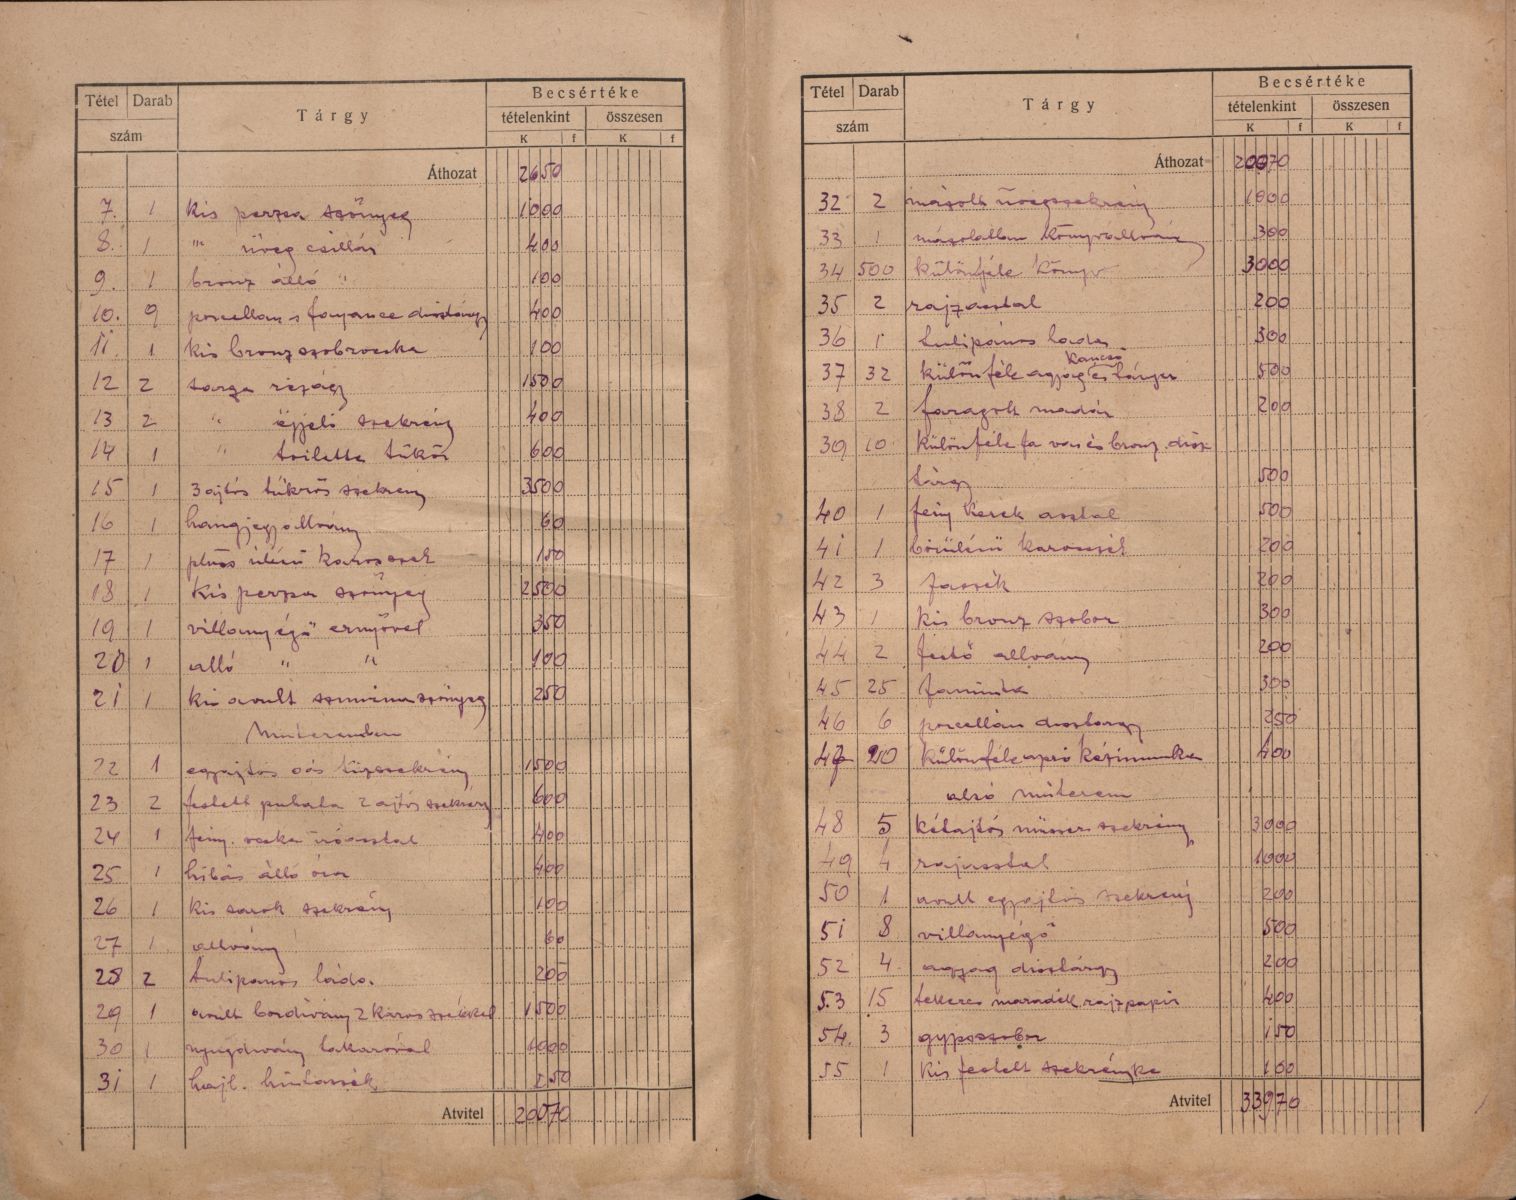 Tétel Darab Tárgy Becsértéke
szám tételenkint összesen
K f K f
Áthozat 2650
7. 1 Kis perzsa szőnyeg 1000
8. 1 " üveg csillár 400
9. 1 bronz álló " 100
10. 9 porcellan s fayance dísztárgy 400
11. 1 Kis bronz szobrocska 100
12 2 sarga rézágy 1500
13 2 " éjjeli szekrény 400
14 1 " toilette tükör 600
15 1 3 ajtós tükrös szekrény 3500
16 1 hangjegyállvány 60
17 1 plüs ülésű karosszék 150
18 1 Kis perzsa szőnyeg 2500
19 1 villanyégő ernyővel 350
20 1 álló " " 100
21 1 kis avult szmirna szőnyeg 250
Műteremben
22 1 egyajtós vas tűzszekrény 1500
23 2 festett puhafa 2 ajtós szekrény 600
24 1 feny. íróasztal 400
25 1 hibás álló óra 400
26 1 Kis sarok szekrény 100
27 1. allvány 60
28 2 tulipános láda. 200
29 1 avult bordívány 2 karosszékkel 1500
30 1 nyugdivány takaróval 1000
31 1 hajl. hintaszék 250
Átvitel 20570
Tétel Darab Tárgy Becsértéke
szám tételenkint összesen
K f K f
Áthozat 20070
32 2 mázolt üvegszekrény 1000
33 1 mázolatlan könyvallvány 300
34 500 különféle könyv 3000
35 2 rajzasztal 200
36 1 tulipános lada 300
kancsó
37 32 különféle agyag és tárgy 500
38 2 faragott madár 200
39 10 különféle fa vas és bronz dísz
tárgy 500
40 1 feny kerek asztal 500
41 1 bőrülésű karosszék 200
42 3 faszék 200
43 1 kis bronz szobor 300
44 2 festő allvany 200
45 25 300
46 6 porcellán dísztárgy 250
47 20 különféle apró kézimunka 400
alsó műterem
48 5 kétajtós műszerszekrény 3000
49 4 rajzasztal 1000
50 1 avult egyajtós szekrény 200
51 8 villanyégő 500
52 4. agyag dísztárgy 200
53 15 tekercs maradék rajzpapír 400
54. 3 gypszszobor 150
55 1 Kis festett szekrényke 100
Átvitel 33970